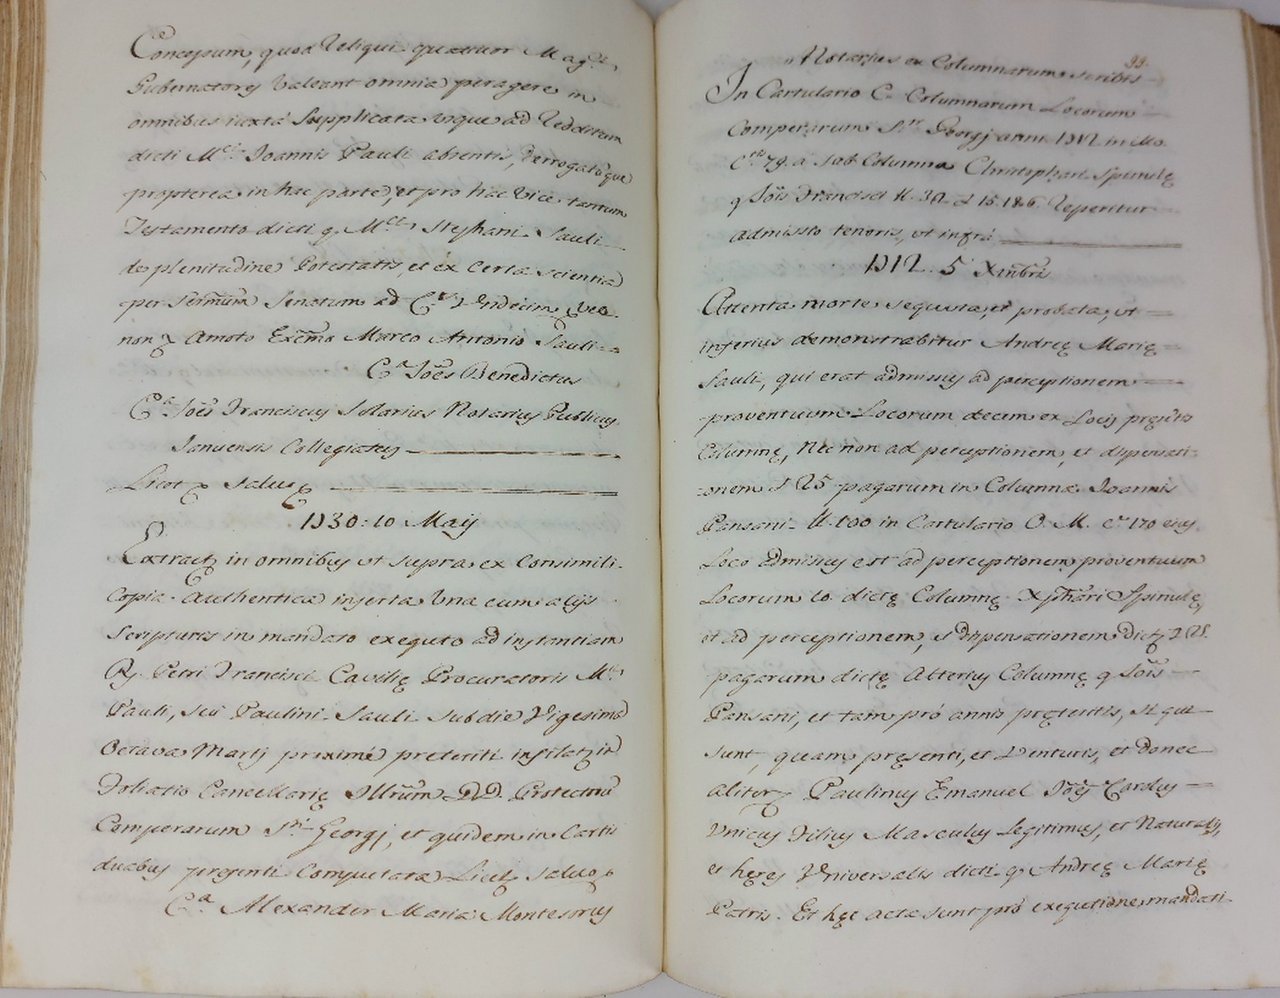 Concessum, quod Reliqui quatuor Mag.ci
Gubernatores Valeant omnia peragere in
omnibus iuxta Supplicata usque ad Redditum
dicti M.ci Joannis Pauli absentis, Derrogatoque
propterea in hac parte, et pro hac Vice tantum
Testamento dicti q. M.ci Stephani Sauli
de plenitudine Potestatis, et ex Certa Scientia
per Sermum Senatum ad C.os Undecim
non Amoto Excmo Marco Antonio Sauli
C.a Joēs Benedictus
C.a Joēs Franciscus Solarius Notarius Publicus
Januensis Collegiatus
Licet Saluo
1730: 10 Maij
Extract in omnibus ut supra ex Consimili
Copia Authentica inserta Una cum alijs
Scripturis in mandato exeguto ad instantiam
Rj. Petri Francisci Cavilię Procuratoris M.ci
Pauli, seu Paulini Sauli sub die Vigesima
Octava Martij proximè preteriti infilat in
Foliatio Cancellarię Illrum DD. Protectorum
Comperarum S.ti Georgj, et quidem in Cartis
duabus presenti Computata Licet Saluo
C.a Alexander Maria Montesorus
99.
Notarius ex Columnarum scribis
In Cartulario C. Columnarum Locorum
Comperarum S.ti Georgj anni 1712 in Mo
C.ta 79. a sub Columna Christophari Spinulę
q. Jois Francisci Reperitur
admissio tenoris, ut infra
1712. 5 Xmbris
Attenta morte sequuta, et probata, ut
inferius demonstrabitur Andreę Marię
Sauli, qui erat admissus ad perceptionem
proventuum Locorum decem ex Locis pręsetis
Columnę, Nec non ad perceptionem, et dispensati
onem 25 pagarum in Columna Joannis
Pansani in Cartulario O. M. C.a 170 eius
Loco admissus est ad perceptionem proventuum
Locorum 10 dictę Columnę Xphari Spinulę,
et ad perceptionem, et dispensationem dictę 25.
pagarum dictę Alterius Columnę q. Jois
Pansani, et tam pro annis pręteritis, si qui
sunt, quam pręsenti, et Venturis, et donec
aliter Paulinus Emanuel Joēs Carolus
Unicus Filius Masculus Legitimus, et Naturalis,
et hęres Universalis dicti q. Andreę Marię
Patris. Et hęc acta sunt pro exegutione mandati